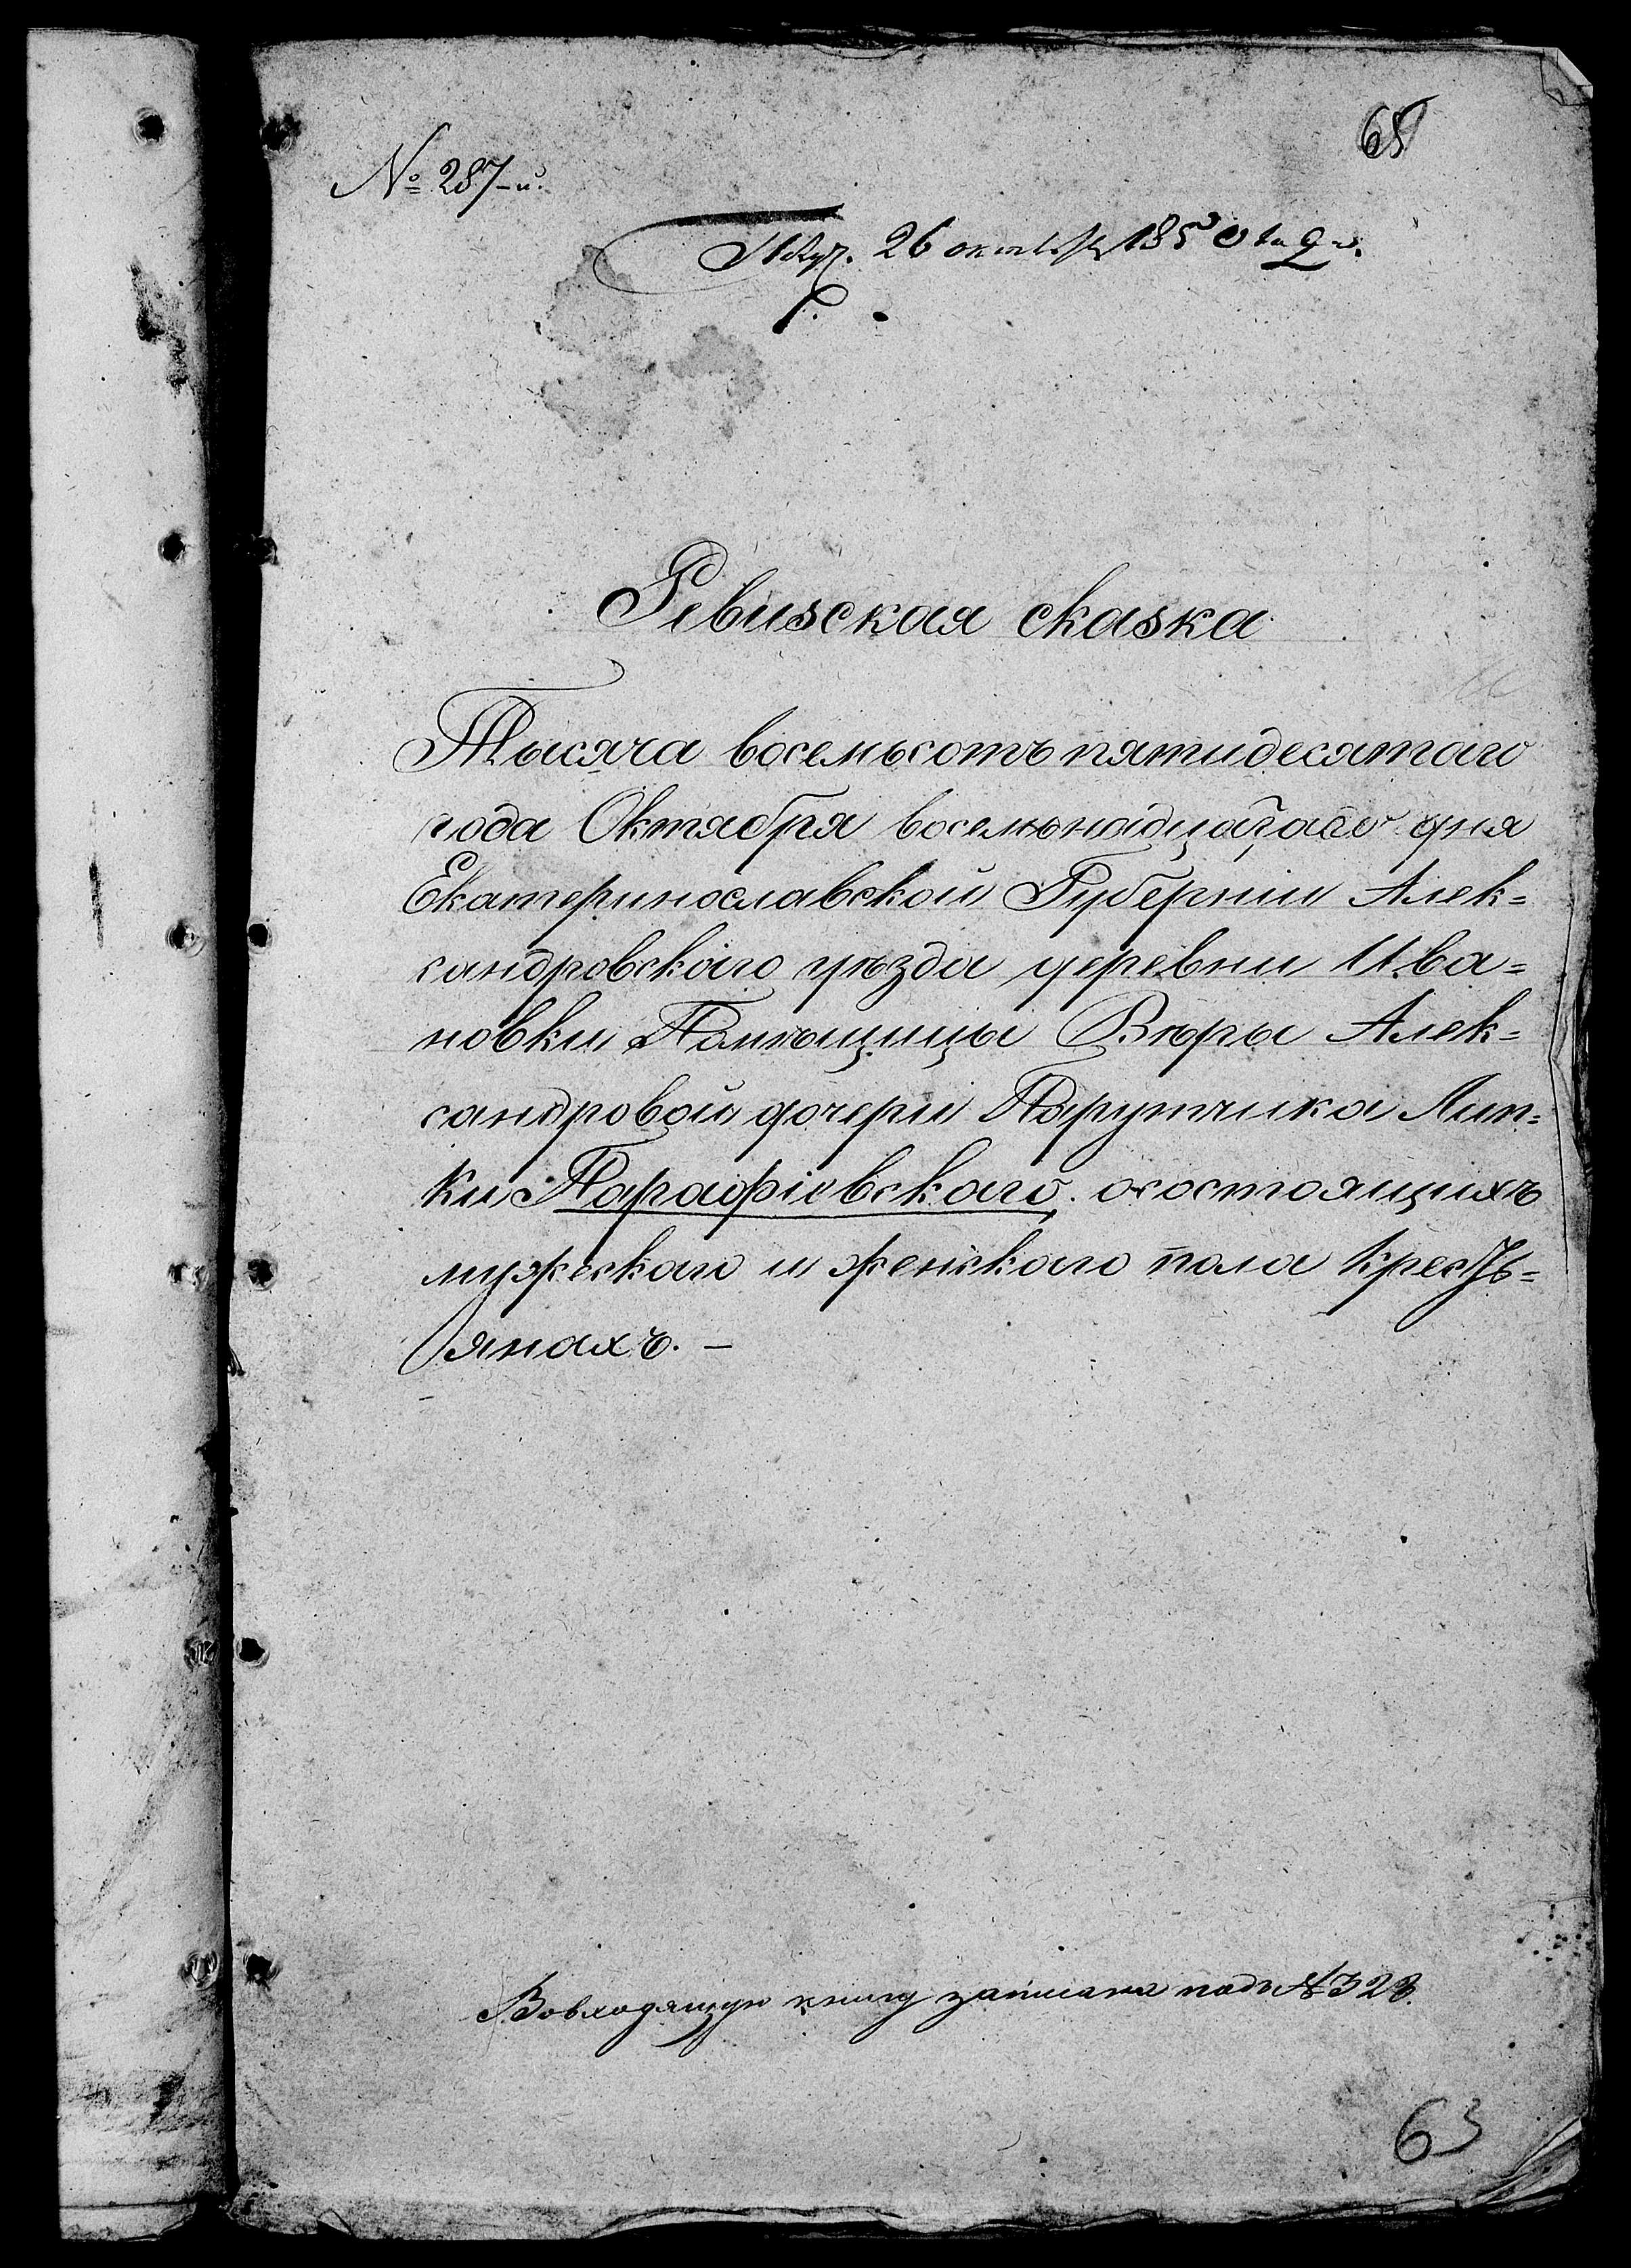 65
№ 287-й.
26 октября 1850
Ревизская сказка
Тысяча восемьсотъ пятидесятаго
года Октября восемьнадцатаго дня
Екатеринославской Губерніи Алек=
сандровскаго уѣзда деревни Ива=
новки Помѣщицы Вѣры Алек=
сандровой дочери Порутчика Лип=
ки Парафіевскаго. осостоящихъ
мужескаго и женскаго пола крестъ=
янахъ. –
Вовходящую книгу записана подъ № 328.
63